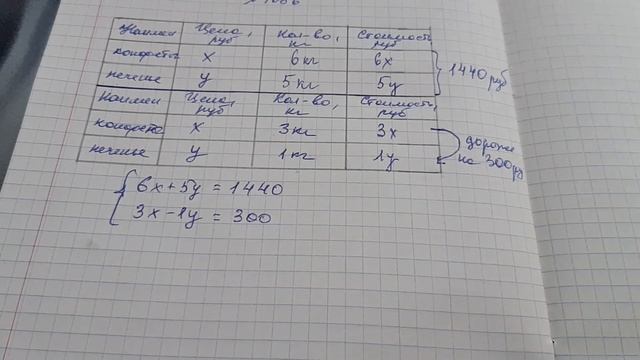 Наимен Цена, руб Кол-во, кг Стоимость, руб
конфеты x 6 кг 6x
печенье y 5 кг 5y
1440 руб
Наимен Цена, руб Кол-во, кг Стоимость, руб
конфета x 3 кг 3x
печенье y 1 кг 1y
дороже на 300 ру
6x+5y = 1440
3x-1y = 300